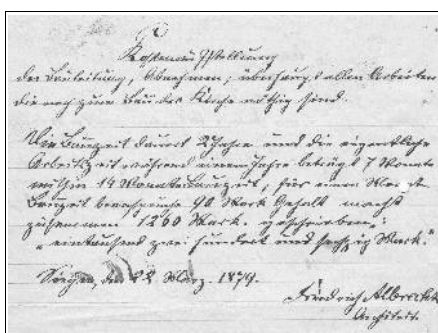 Kostenaufstellung
der Bauleitung, Abnehmen, überhaupt allen Arbeiten
die noch zum Bau der Kirche nöthig sind.
Die Bauzeit dauert 2 Jahre und die eigentliche
Arbeitszeit während einem Jahre beträgt 7 Monate
mithin 14 Monate Bauzeit, für einen Monat
Bauzeit beanspruche 90 Mark Gehalt macht
zusammen 1260 Mark. geschrieben:
"eintausend zwei hundert und sechzig Mark."
den 22 März. 1879.
Friedrich Albrecht
Architekt.